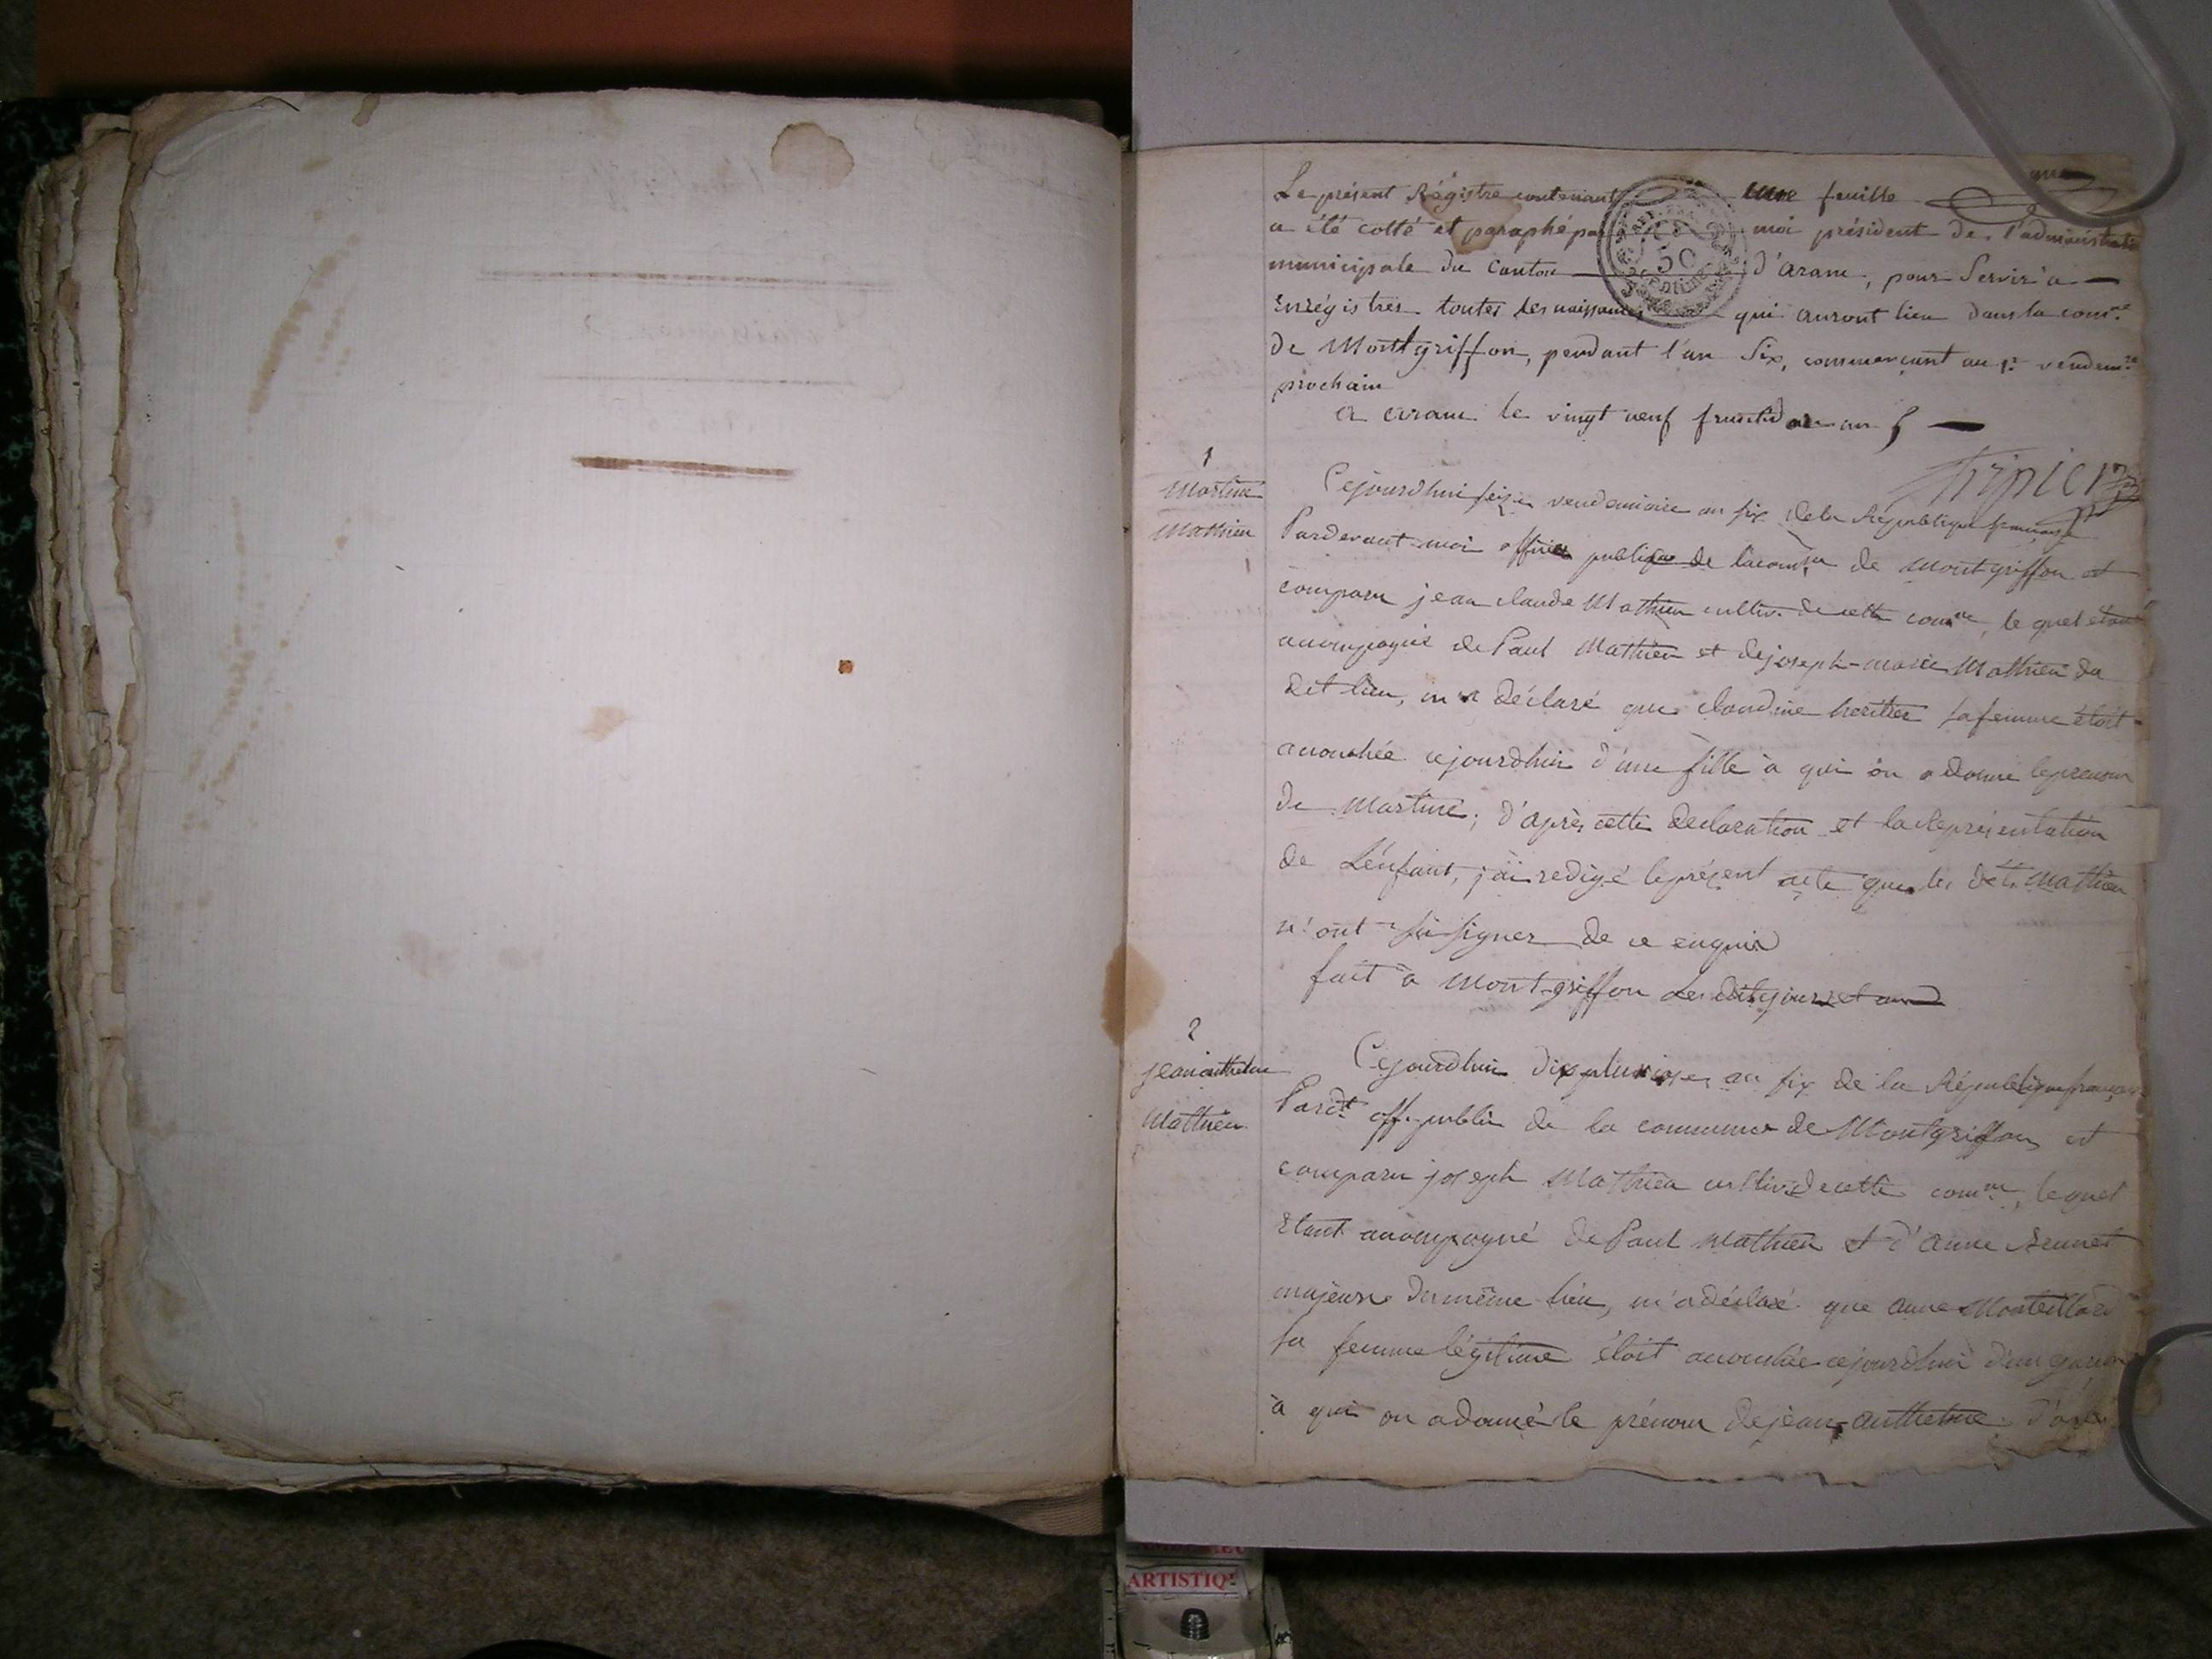 une
Le présent Régistre contenant une feuille
a été cotté et paraphé par moi président de l'administrat
municipale du Canton d'aranc, pour Servir à
Enrégistrer toutes les naissances qui auront lieu dans la comne
de Montgriffon, pendant l'an Six, commençant au 1er vendemre
prochain
a aranc le vingt neuf fructidor an 5
1
Martine
Mathieu
Cejourdhui seize vendemiaire an six de la République française
Pardevant moi officier publique de la comune de Montgriffon est
comparu jean claude Mathieu cultiv. de cette comne, le quel etant
acompagné de Paul Mathieu et de joseph-marie Mathieu du
dit lieu, m'a déclaré que claudine heritier sa femme étoit
acouchée cejourdhui d'une fille à qui on a donné le prenom
de Martine; d'après cette declaration et la Représentation
de L'énfant, j'ai redigé le présent acte que les dits Mathieu
n'ont su signer de ce enquis
fait à Montgriffon Les dits jour et an
2
jean anthelme
Mathieu
Cejourdhui dix pluviose an six de la République française
Pardt off. public de la commune de Montgriffon est
comparu joseph Mathieu cultiv. de cette comne, lequel
Etant acompagné de Paul Mathieu et d'anne
majeurs du même lieu, m'a déclaré que anne Monteillard
sa femme légitime étoit acouchée cejourdhui d'un garçon
à qui on a donné le prénom de jean-anthelme d'apr
50
ARTISTIQ